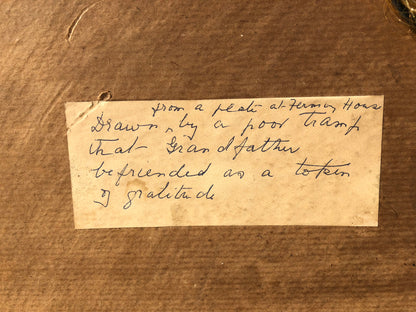 from a plate at Fermoy House
Drawn, by a poor tramp
that Grandfather
befriended as a token
of gratitude